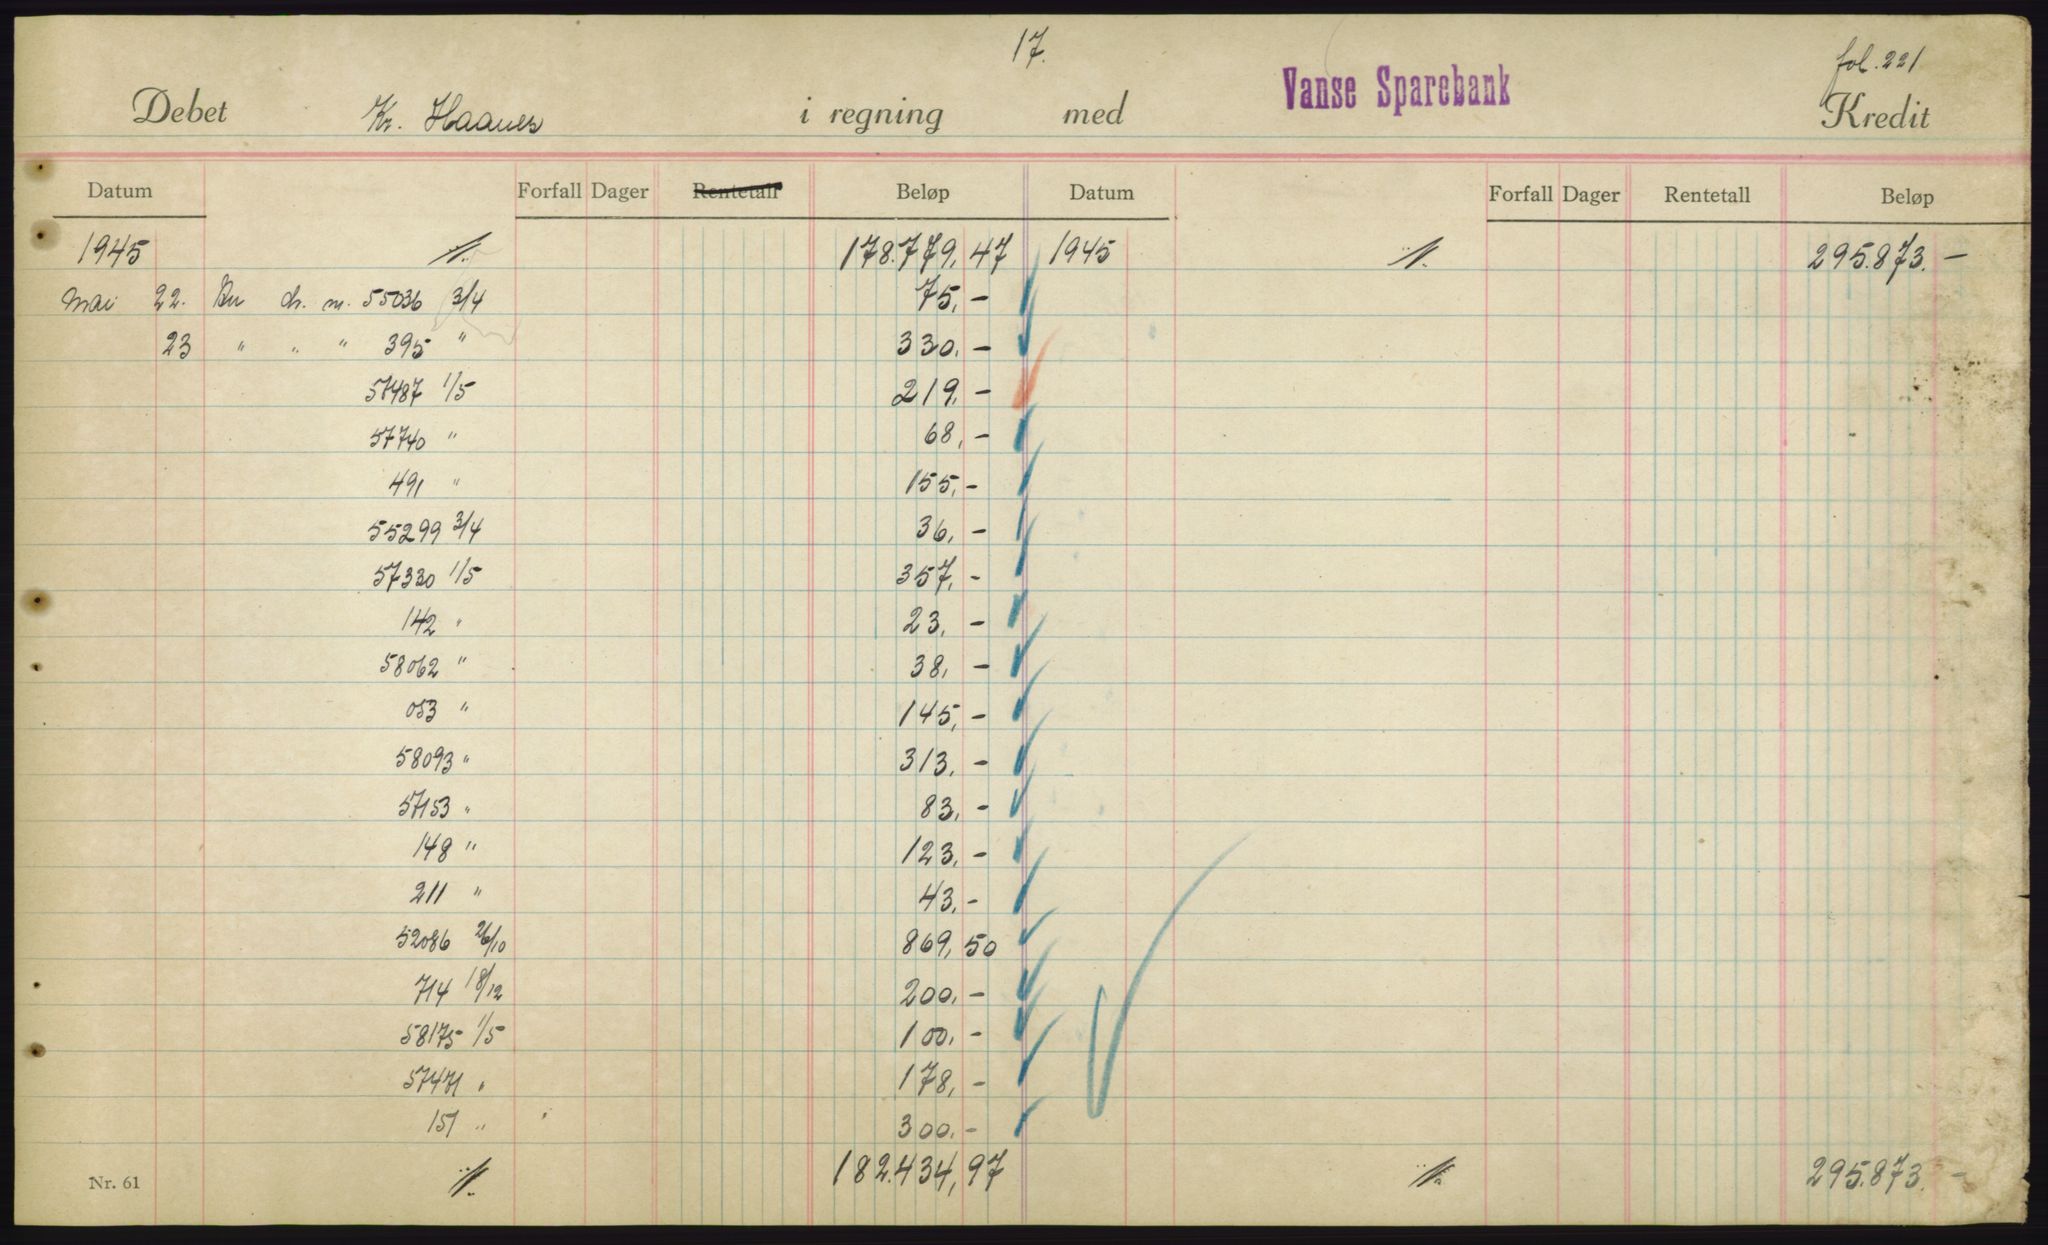 17.
fol. 221
Debet Kr. Haanes i regning med Vanse Sparebank Kredit
Datum Forfall Dager Rentetall Beløp Datum Forfall Dager Rentetall Beløp
1945 178.779,47 1945 295.873.-
Mai 22. 55036 3/4 75,-
23 " " " 395 " 330,-
57487 1/5 219,-
57740 " 68,-
491 " 155,-
55299 3/4 36,-
57330 1/5 357,-
142 " 23,-
58062 " 38,-
053 " 145,-
58093 " 313,-
57153 " 83,-
148 " 123,-
211 " 43,-
52086 26/10 869,50
714 18/12 200,-
58175 1/5 100,-
57471 " 178,-
151 " 300,-
Nr. 61 182.434,97 295.873.-